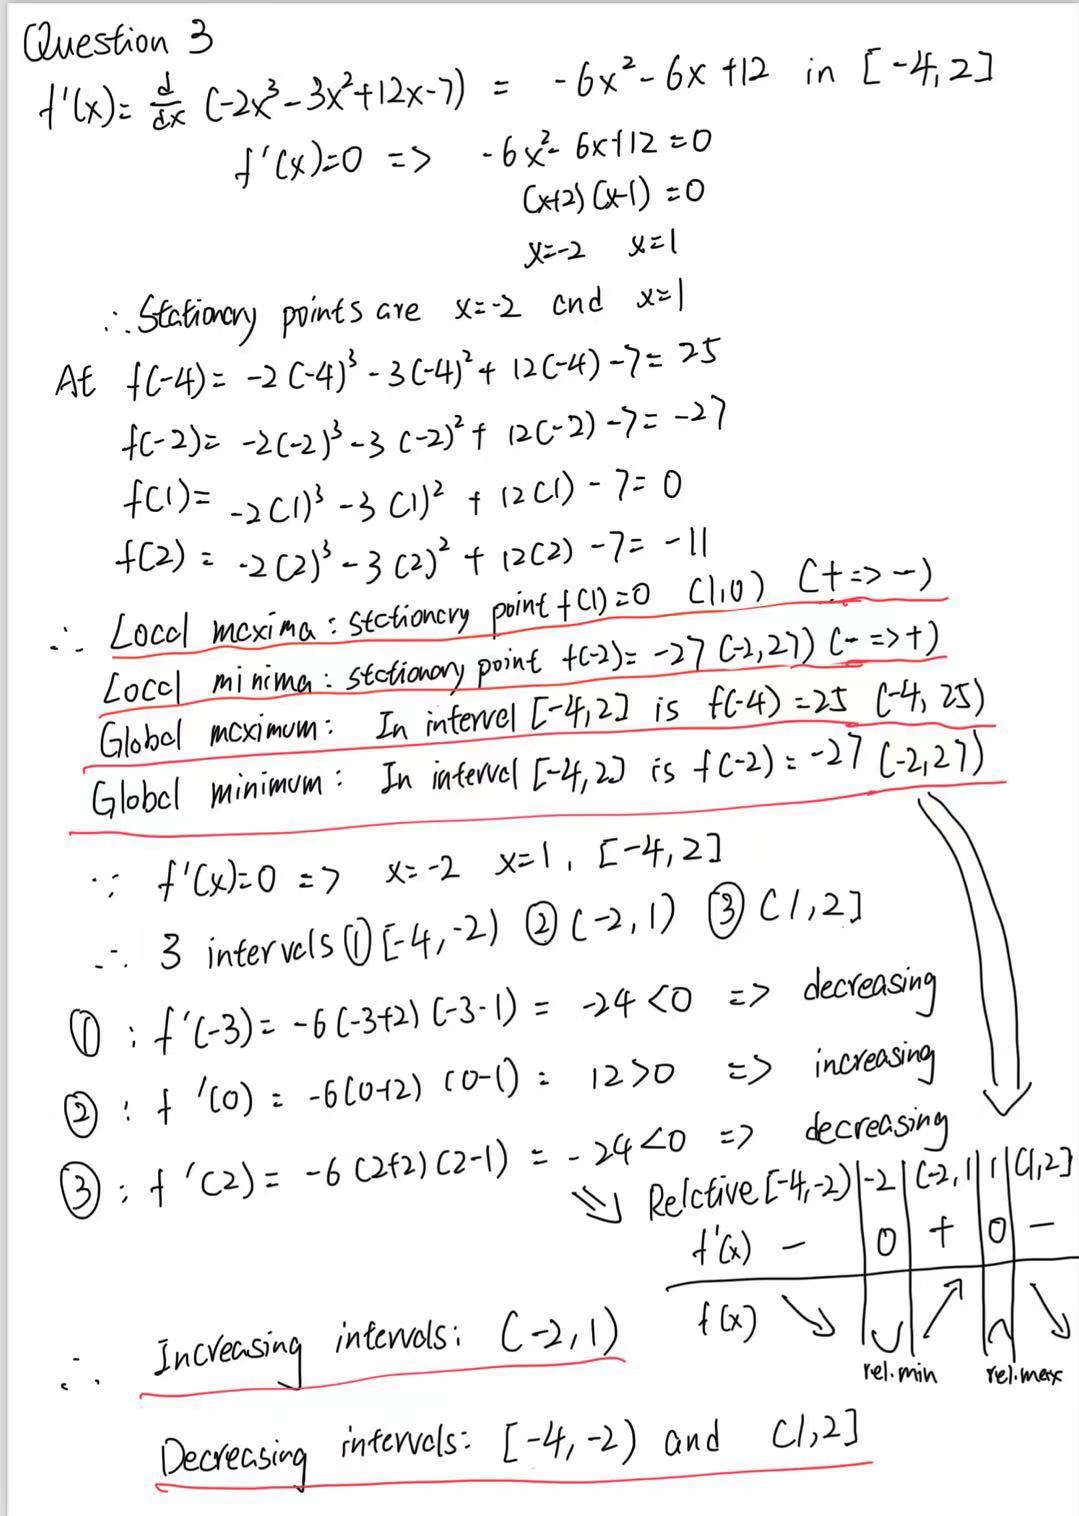 Question 3
f'(x)= d/dx (-2x³-3x²+12x-7) = -6x²-6x+12 in [-4,2]
f'(x)=0 => -6x²-6x+12=0
(x+2)(x-1)=0
x=-2 x=1
∴ Stationary points are x=-2 and x=1
At f(-4)= -2(-4)³-3(-4)²+12(-4)-7= 25
f(-2)= -2(-2)³-3(-2)²+12(-2)-7= -27
f(1)= -2(1)³-3(1)²+12(1)-7= 0
f(2)= -2(2)³-3(2)²+12(2)-7= -11
∴ Local maxima: stationary point f(1)=0 (1,0) (+=>-)
Local minima: stationary point f(-2)= -27 (-2,27) (-=>+)
Global maximum: In interval [-4,2] is f(-4)=25 (-4,25)
Global minimum: In interval [-4,2] is f(-2)=-27 (-2,27)
∵ f'(x)=0 => x=-2 x=1, [-4,2]
∴ 3 intervals ① [-4,-2) ② (-2,1) ③ (1,2]
①: f'(-3)= -6(-3+2)(-3-1)= -24<0 => decreasing
②: f'(0)= -6(0+2)(0-1)= 12>0 => increasing
③: f'(2)= -6(2+2)(2-1)= -24<0 => decreasing
Relative [-4,-2) | -2 | (-2,1) | 1 | (1,2]
f'(x) - 0 + 0 -
f(x) ↘ ↗ ↘
rel.min rel.max
∴ Increasing intervals: (-2,1)
Decreasing intervals: [-4,-2) and (1,2]